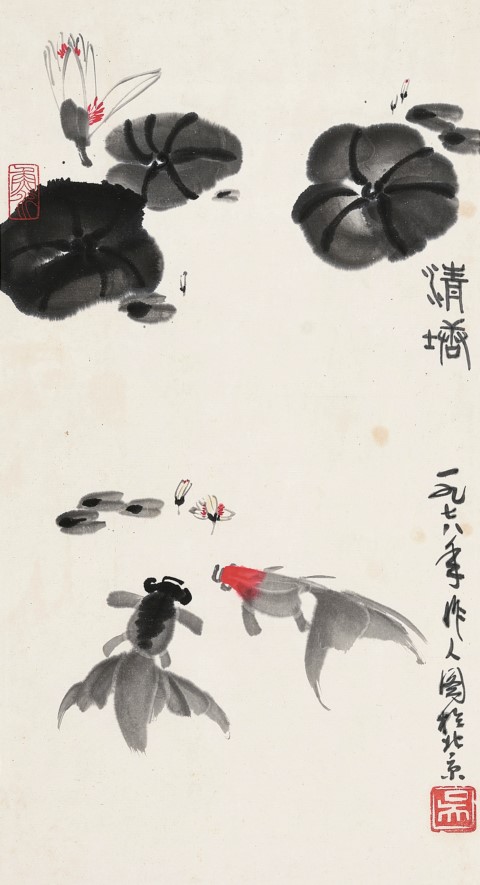 清塘
一九七八年作人圖於北京
吴